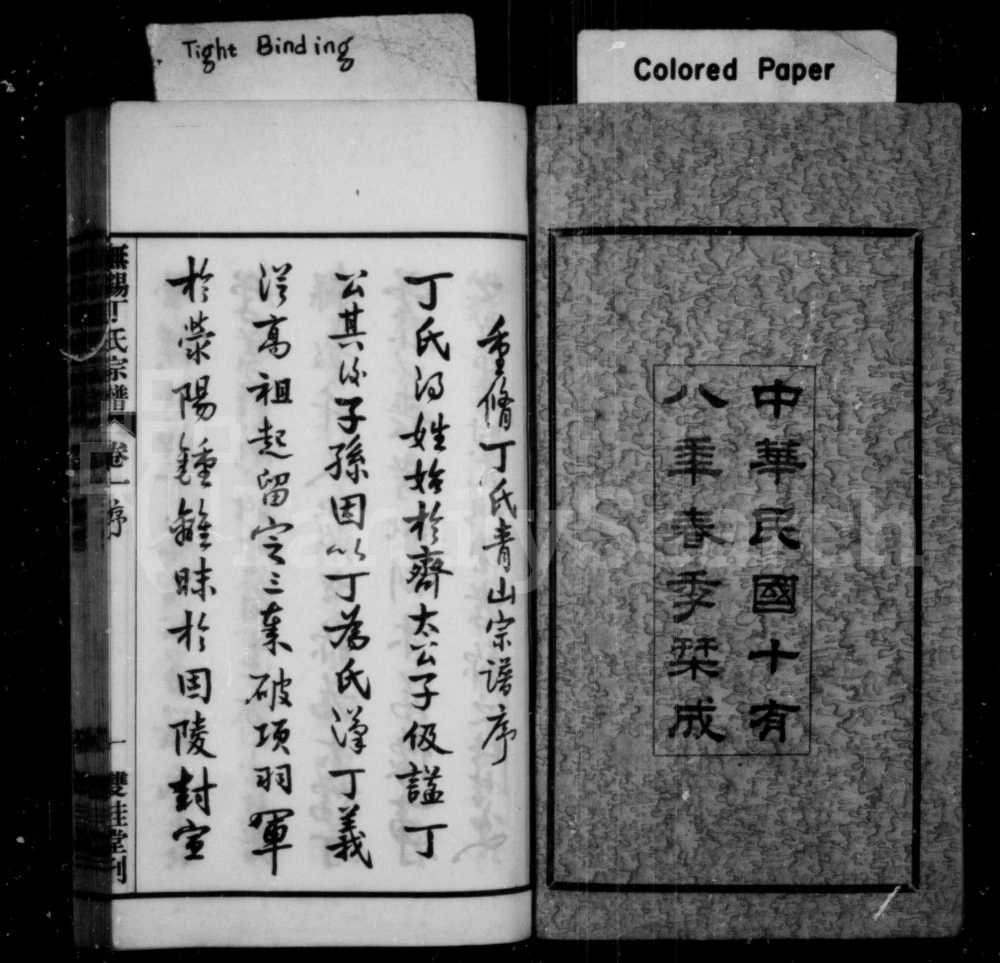 Tight Binding
Colored Paper
中華民國十有
八年春季栞成
重脩丁氏青山宗譜序
丁氏得姓始於齊太公子伋謚丁
公其後子孫因以丁為氏漢丁義
從高祖起留定三秦破項羽軍
於滎陽鍾離眜於固陵封宣
無錫丁氏宗譜 卷一 序 一 雙桂堂刊
FamilySearch